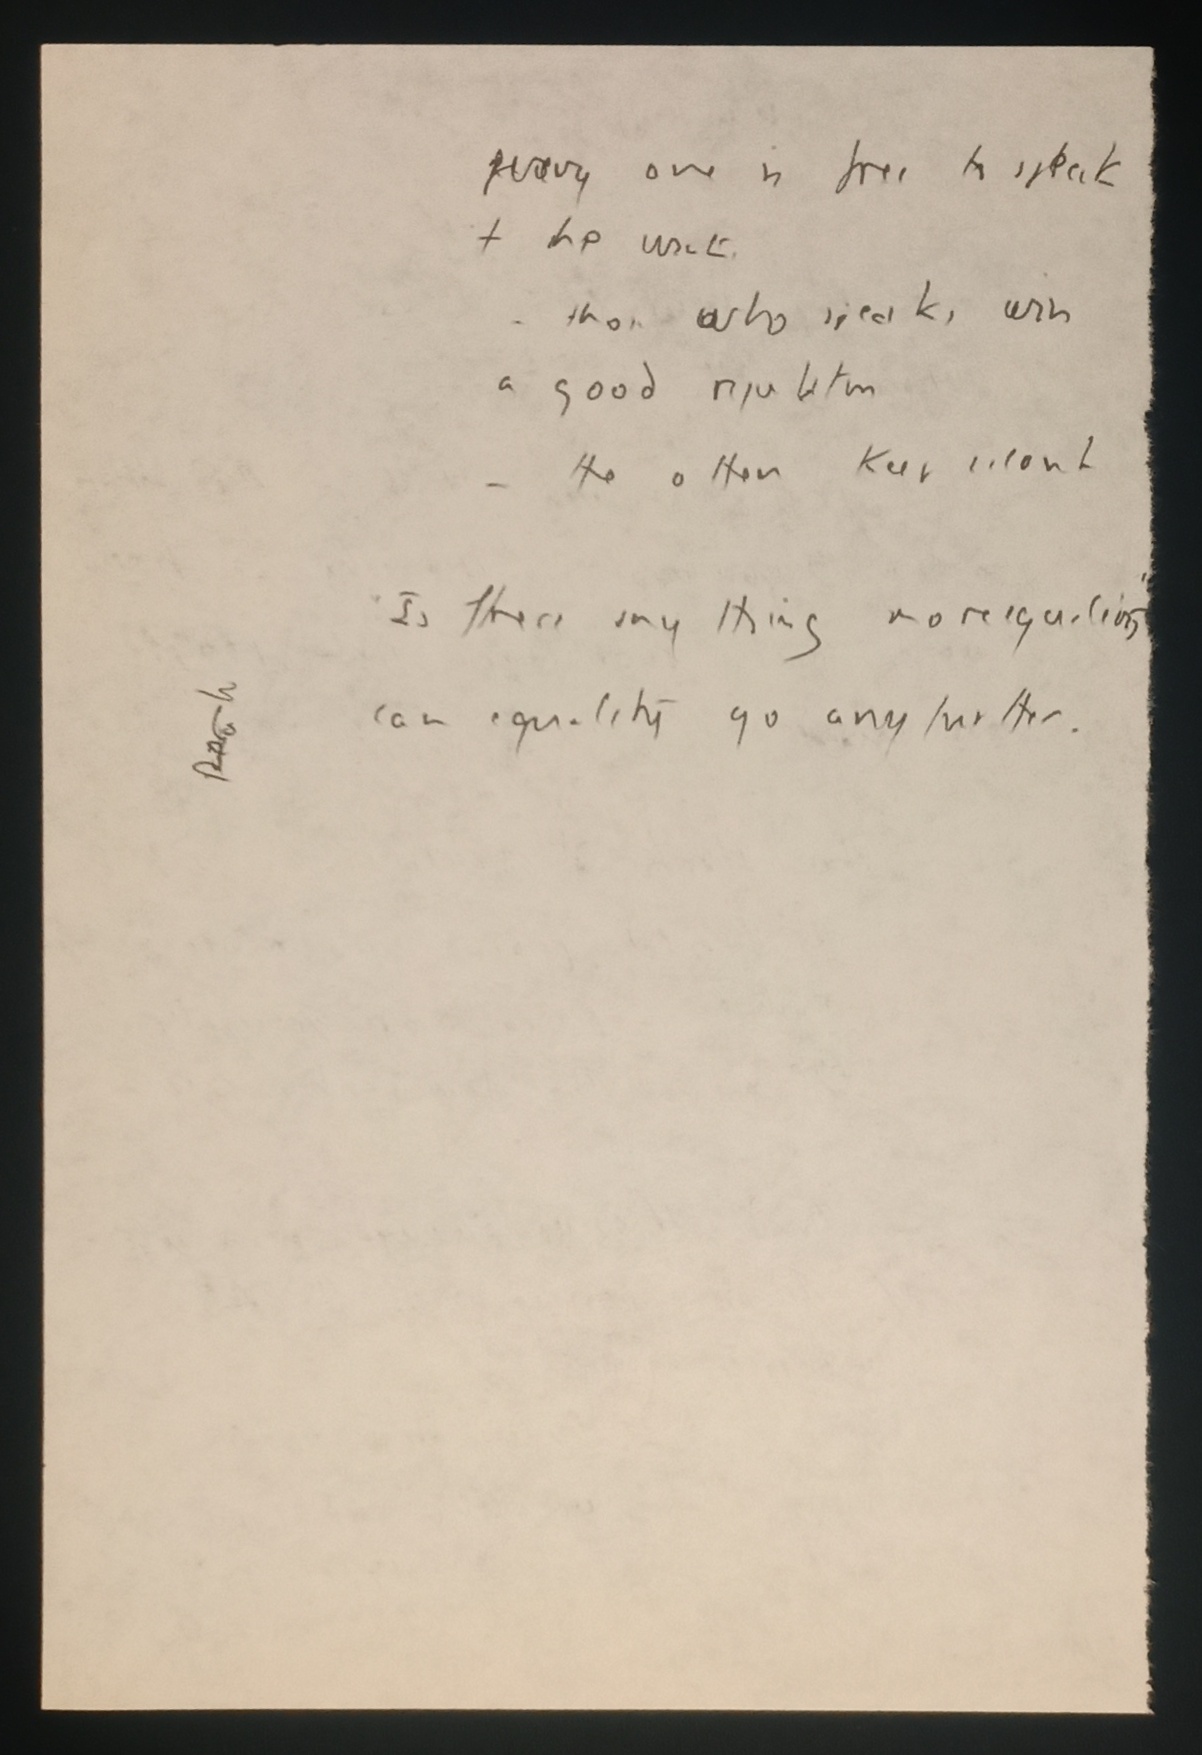 every one is free to speak
+ the weak.
- those who speak, win
a good reputation
- the others keep silent
"Is there any thing more equalising"
can equality go any further.